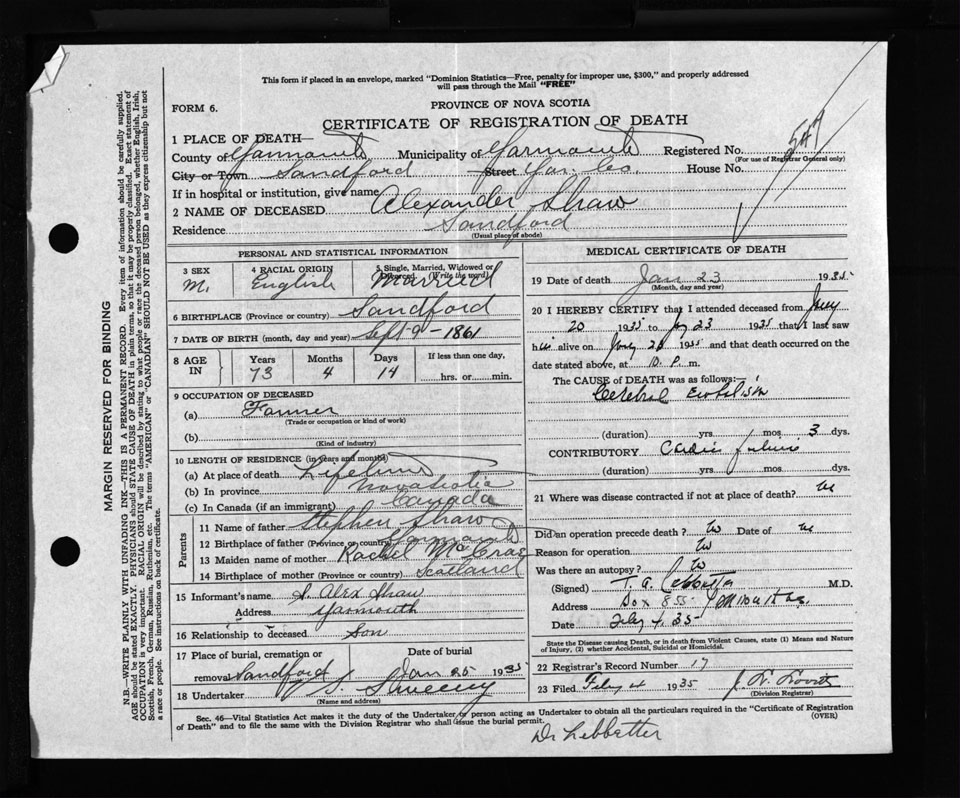 This form if placed in an envelope, marked "Dominion Statistics—Free, penalty for improper use, $300," and properly addressed
will pass through the Mail "FREE"
FORM 6.
PROVINCE OF NOVA SCOTIA
CERTIFICATE OF REGISTRATION OF DEATH
547
1 PLACE OF DEATH—
County of Yarmouth Municipality of Yarmouth Registered No.
(For use of Registrar General only)
City or Town Sandford Street Yar. Co. House No.
If in hospital or institution, give name
2 NAME OF DECEASED Alexander Shaw
Residence Sandford
(Usual place of abode)
PERSONAL AND STATISTICAL INFORMATION
3 SEX 4 RACIAL ORIGIN 5 Single, Married, Widowed or
Divorced. (Write the word)
M. English Married
6 BIRTHPLACE (Province or country) Sandford
7 DATE OF BIRTH (month, day and year) Sept-9-1861
8 AGE IN Years Months Days If less than one day,
73 4 14 hrs. or min.
9 OCCUPATION OF DECEASED
(a) Farmer
(Trade or occupation or kind of work)
(b)
(Kind of industry)
10 LENGTH OF RESIDENCE (in years and months)
(a) At place of death Lifetime
(b) In province Nova Scotia
(c) In Canada (if an immigrant) Canada
Parents
11 Name of father Stephen Shaw
12 Birthplace of father (Province or country) Yarmouth
13 Maiden name of mother Rachel McCrae
14 Birthplace of mother (Province or country) Scotland
15 Informant's name S. Alex Shaw
Address Yarmouth
16 Relationship to deceased Son
17 Place of burial, cremation or Date of burial
removal Sandford Jan 25 1935
18 Undertaker Sweeny
(Name and address)
MEDICAL CERTIFICATE OF DEATH
19 Date of death Jan 23 1935
(Month, day and year)
20 I HEREBY CERTIFY that I attended deceased from
20 1935 to 23 1935 that I last saw
h alive on 1935 and that death occurred on the
date stated above, at 10. P. m.
The CAUSE of DEATH was as follows:—
Cerebral Embolism
(duration) yrs. mos. 3 dys.
CONTRIBUTORY Cardiac failure
(duration) yrs. mos. dys.
21 Where was disease contracted if not at place of death?
Did an operation precede death? No Date of
Reason for operation No
Was there an autopsy? No
(Signed) T. A. Lebbetter M.D.
Address Box 855 Yarmouth N.S.
Date Feby 4. 35
State the Disease causing Death, or in death from Violent Causes, state (1) Means and Nature
of Injury, (2) whether Accidental, Suicidal or Homicidal.
22 Registrar's Record Number 17
23 Filed Feby 4 1935
(Division Registrar)
Sec. 46—Vital Statistics Act makes it the duty of the Undertaker or person acting as Undertaker to obtain all the particulars required in the "Certificate of Registration
of Death" and to file the same with the Division Registrar who shall issue the burial permit. (OVER)
Dr Lebbetter
MARGIN RESERVED FOR BINDING
N.B.—WRITE PLAINLY WITH UNFADING INK—THIS IS A PERMANENT RECORD. Every item of information should be carefully supplied.
AGE should be stated EXACTLY. PHYSICIANS should STATE CAUSE OF DEATH in plain terms, so that it may be properly classified. Exact statement of
OCCUPATION is very important. RACIAL ORIGIN will be described by stating to what people or race the deceased person belonged, whether English, Irish,
Scottish, French, German, Russian, Ruthenian, etc. The terms "AMERICAN" or "CANADIAN" SHOULD NOT BE USED as they express citizenship but not
a race or people. See instructions on back of certificate.